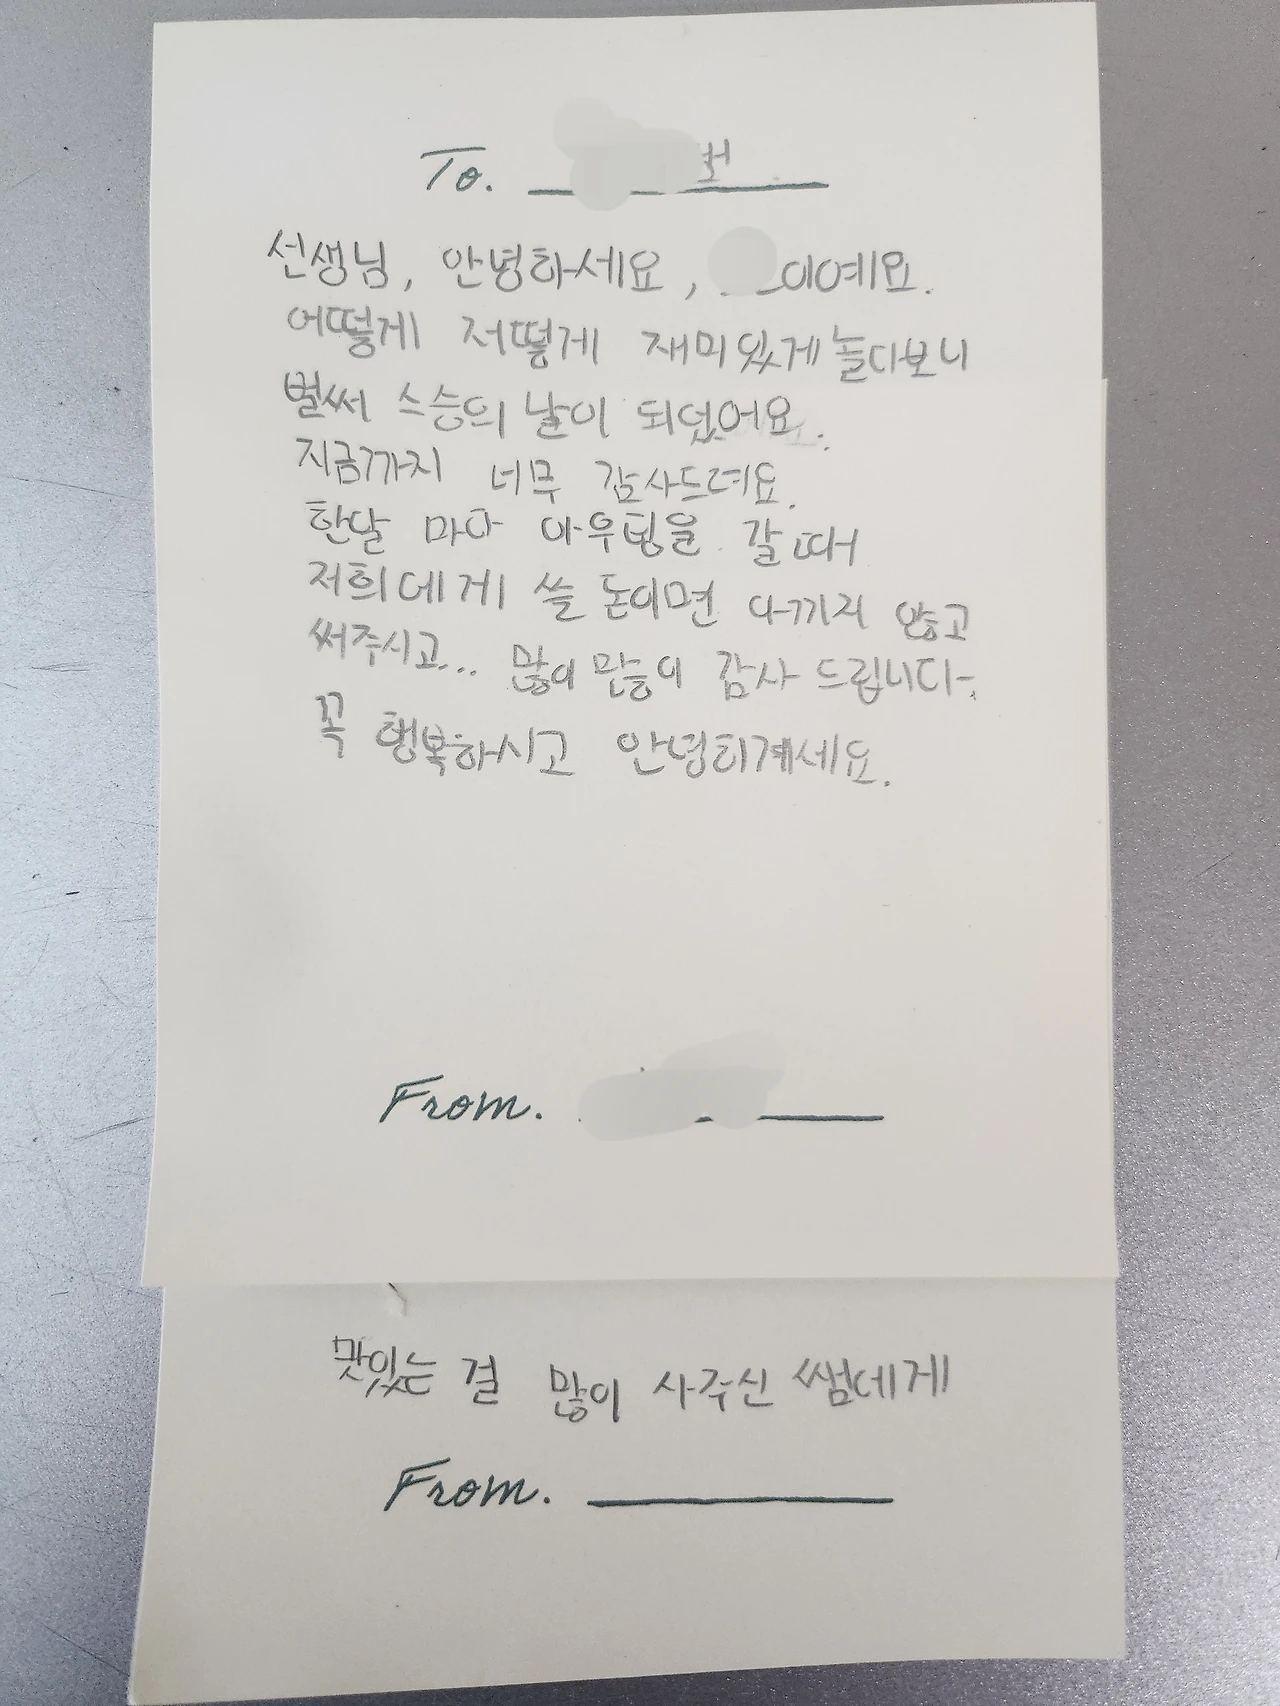 To.
선생님, 안녕하세요, 이예요.
어떻게 저떻게 재미있게 놀다보니
벌써 스승의 날이 되었어요.
지금까지 너무 감사드려요.
한달 마다 아우팅을 갈 때
저희에게 쓸 돈이면 아끼지 않고
써주시고... 많이 많이 감사 드립니다.
꼭 행복하시고 안녕히계세요.
From.
맛있는 걸 많이 사주신 쌤에게
From.